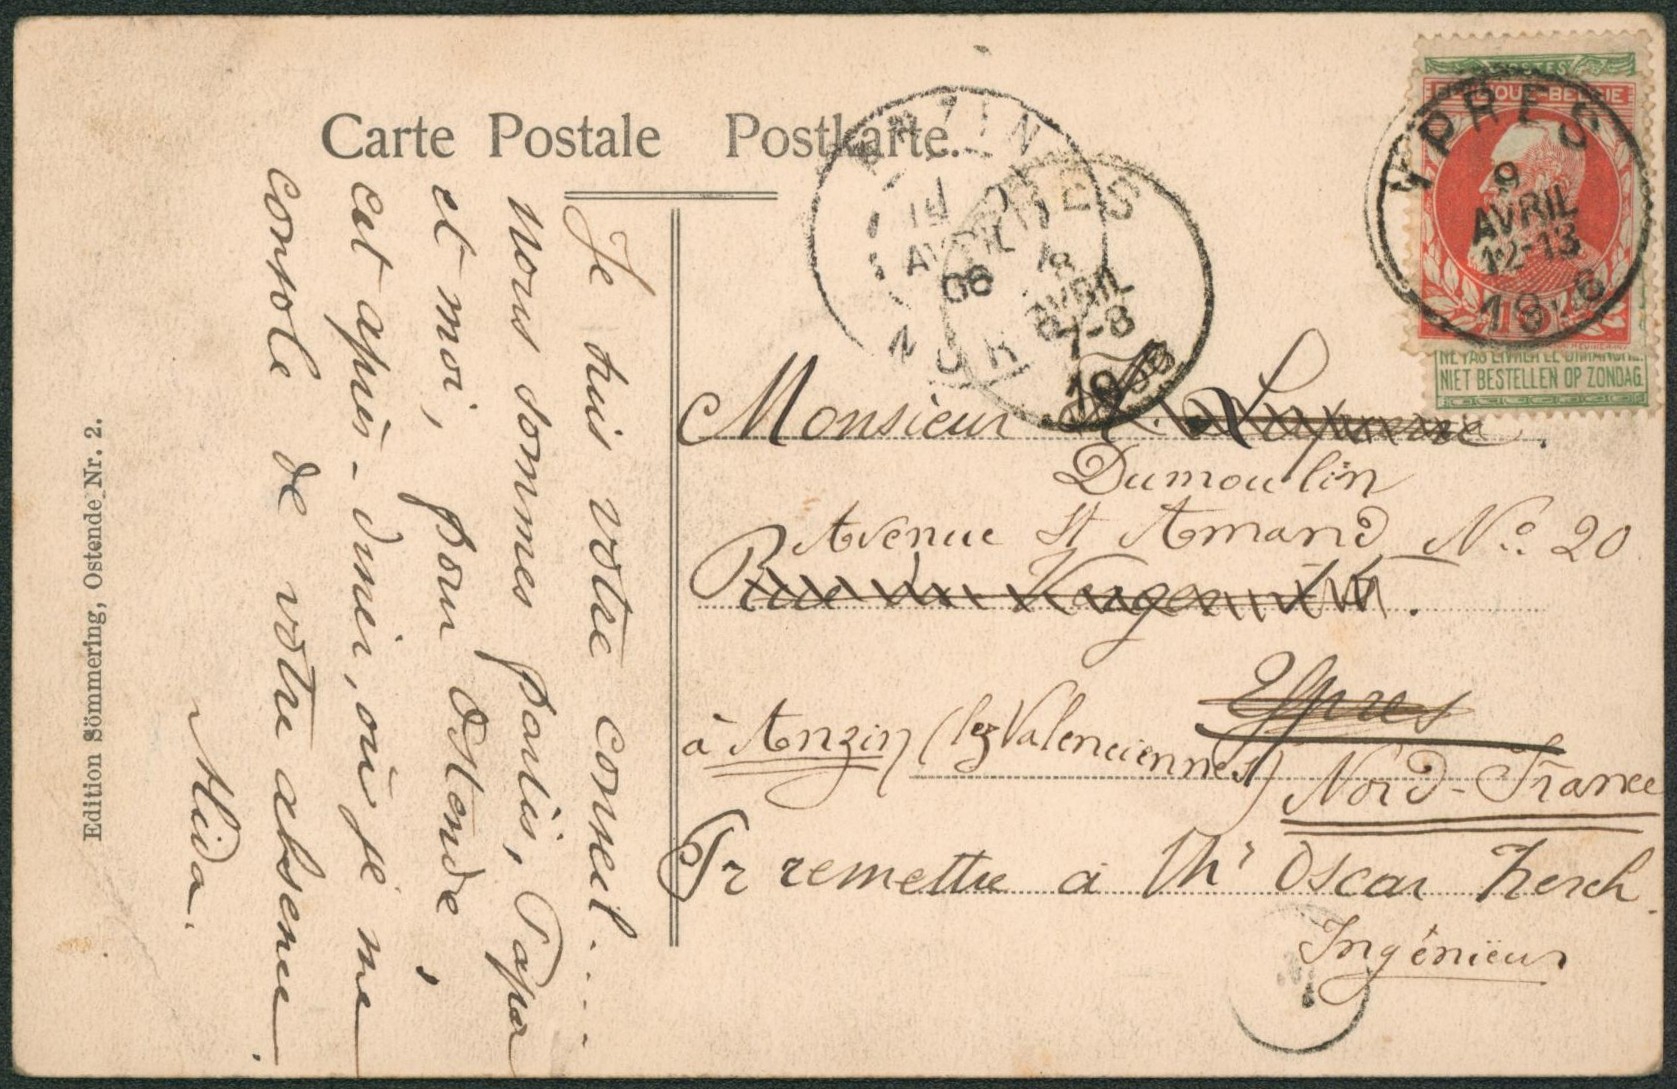 Carte Postale Postkarte.
Edition Sömmering, Ostende Nr. 2.
Je suis votre conseil....
nous sommes partis, Papa
et moi, pour Ostende,
cet après-dîner, où je me
console de votre absence.
Alida.
POSTES
NE PAS LIVRER LE DIMANCHE.
NIET BESTELLEN OP ZONDAG.
YPRES
9
AVRIL
12-13
ANZIN
10
AVRIL
06
NORD
YPRES
8
AVRIL
7-8
1906
Monsieur
Dumoulin
Avenue St Amand No. 20
Rue
Ypres
à Anzin (lez Valenciennes)
Nord-France
Pr remettre à Mr Oscar
Ingénieur